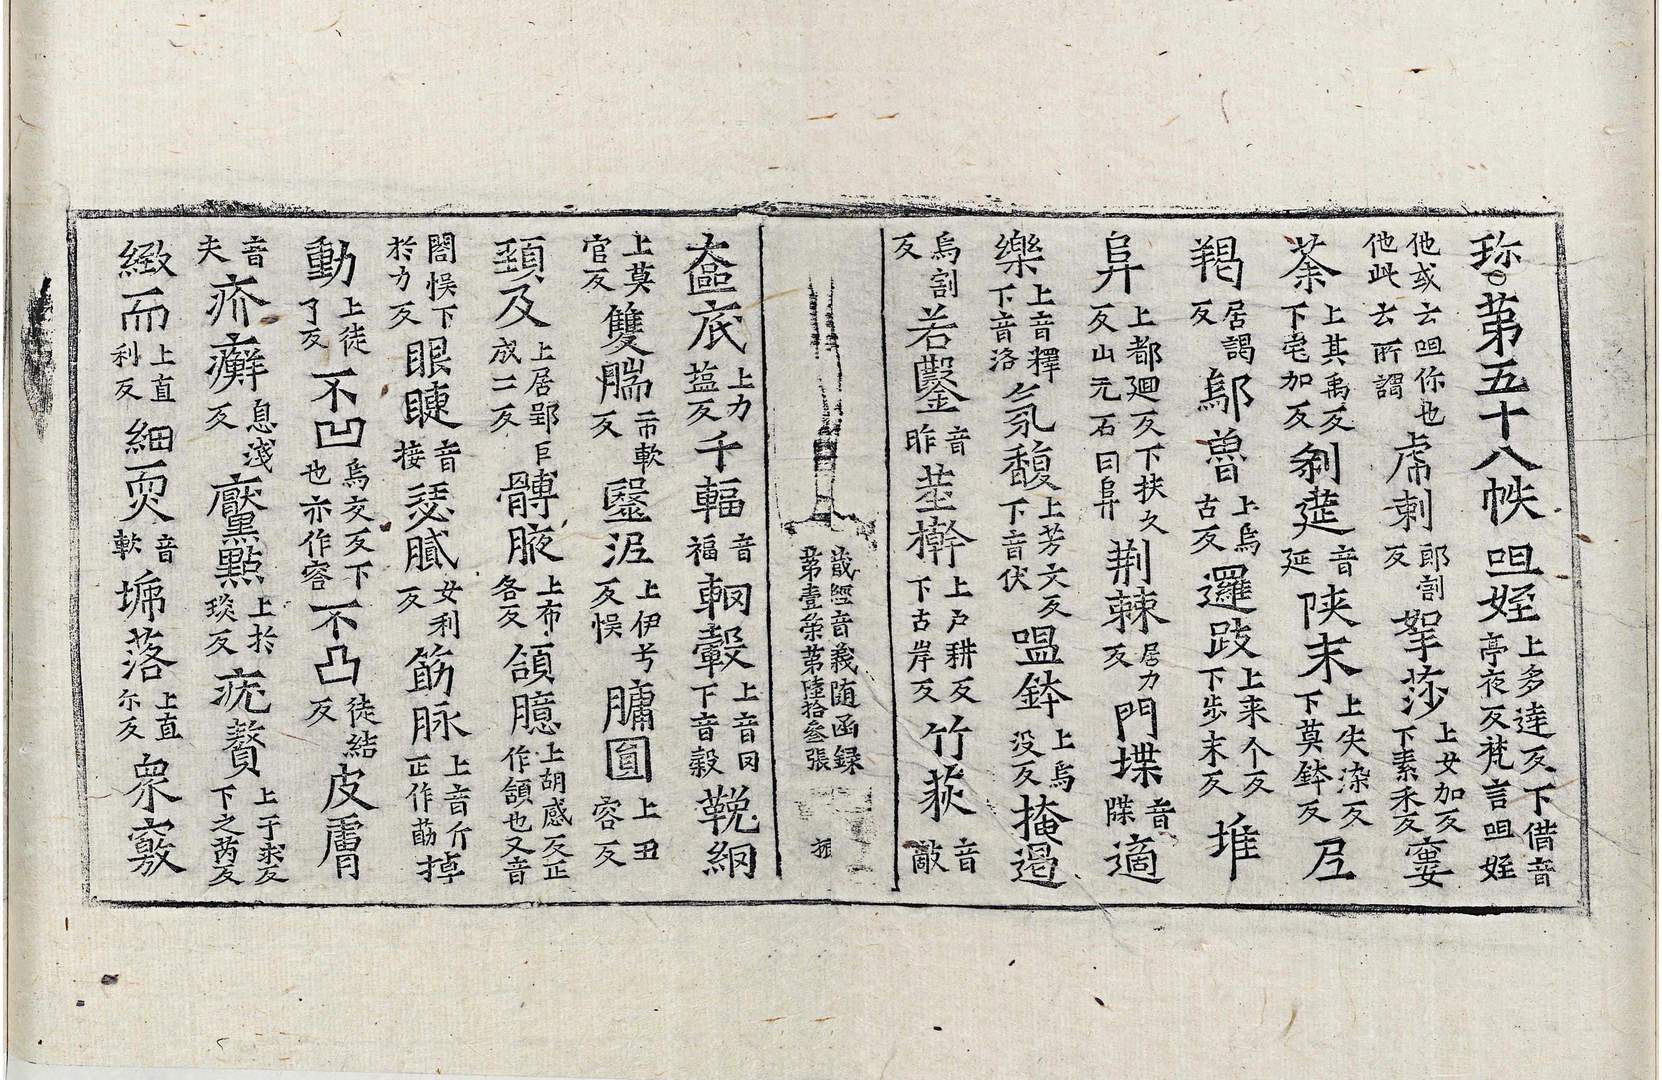 珎。第五十八帙 呾姪上多達反下借音亭夜反梵言呾姪
他或云呾你也他此云所謂 虎刺郎割反 挐莎上女加反下素禾反 窶
荼上其禹反下宅加反 剃莚音延 陝末上失染反下莫鉢反 𡰱
羯居謁反 鄔魯上烏古反 邏跂上来个反下步末反 堆
阜上都廻反下扶久反山元石曰阜 荆棘居力反 門堞音牒 適
樂上音釋下音洛 氛馥上芳文反下音伏 嗢鉢上烏没反 掩遏
烏割反 若鑿音昨 莖檊上户耕反下古岸反 竹荻音敵
藏經音義随函録第壹第陸拾叁張
奩底上力塩反 千輻音福 輞轂上音冈下音穀 鞔網
上莫官反 雙腨市軟反 翳泥上伊兮反悮 𦟛圓上丑容反
頸及上居郢巨成二反 髆腋上布各反 頷臆上胡感反正作顄也又音
閤悮下於力反 眼睫音接 瑟膩女利反 筋脉上音斤正作荕 掉
動上徒了反 不凹烏交反下也亦作窊 不凸徒結反 皮膚
音夫 疥癬息淺反 黶點上於琰反 疣贅上于求反下之芮反
緻而上直利反 細耎音軟 㙞落上直尓反 衆竅